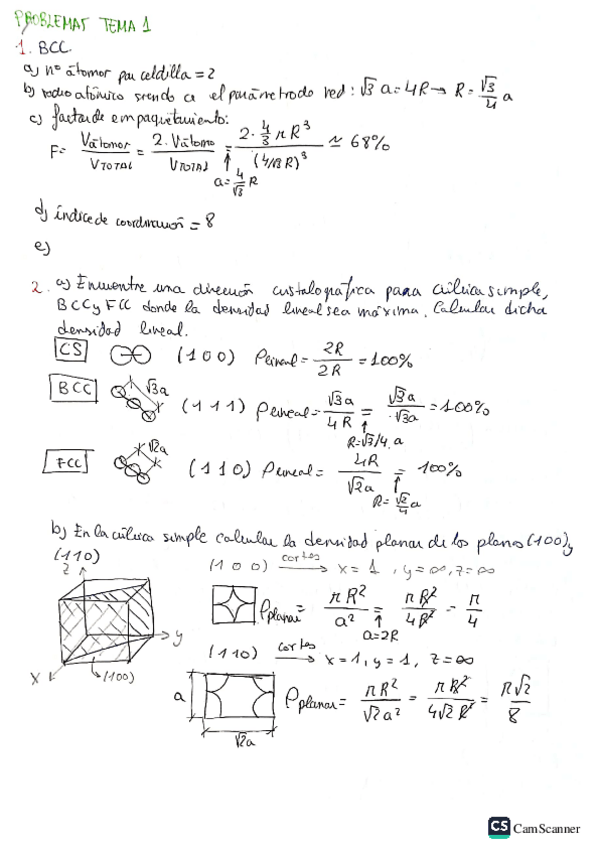 PROBLEMAS TEMA 1
1. BCC
a) nº átomos por celdilla = 2
b) radio atómico siendo a el parámetro de red: √3 a = 4R → R = √3/4 a
c) factor de empaquetamiento:
F = Vátomos/VTOTAL = 2·Vátomo/VTOTAL = 2·4/3 π R³/(4/√3 R)³ ≈ 68%
a = 4/√3 R
d) índice de coordinación = 8
e)
2. a) Encuentre una dirección cristalográfica para cúbica simple,
BCC y FCC donde la densidad lineal sea máxima. Calcular dicha
densidad lineal.
CS (1 0 0) ρlineal = 2R/2R = 100%
BCC √3a (1 1 1) ρlineal = √3a/4R = √3a/√3a = 100%
R=√3/4·a
FCC √2a (1 1 0) ρlineal = 4R/√2a = 100%
R=√2/4 a
b) En la cúbica simple calcular la densidad planar de los planos (100) y
(110)
(1 0 0) cortes → x = 1, y = ∞, z = ∞
z
y
x
(100)
ρplanar = πR²/a² = πR²/4R² = π/4
a=2R
(1 1 0) cortes → x = 1, y = 1, z = ∞
a
√2a
ρplanar = πR²/√2a² = πR²/4√2R² = π√2/8
CS CamScanner